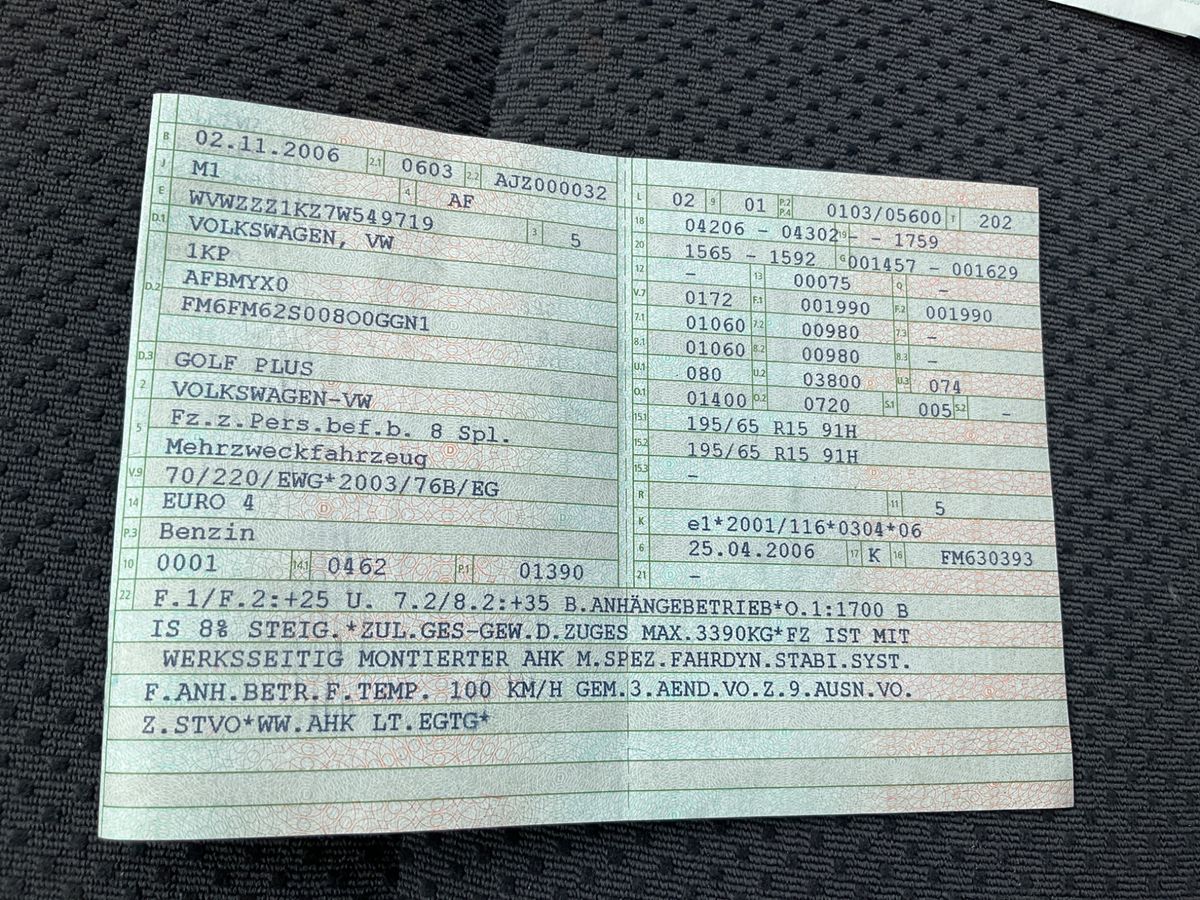 B 02.11.2006 2.1 0603 2.2 AJZ000032
J M1 4 AF
E WVWZZZ1KZ7W549719 3 5
D.1 VOLKSWAGEN, VW
1KP
D.2 AFBMYX0
FM6FM62S008O0GGN1
D.3 GOLF PLUS
2 VOLKSWAGEN-VW
5 Fz.z.Pers.bef.b. 8 Spl.
Mehrzweckfahrzeug
V.9 70/220/EWG*2003/76B/EG
14 EURO 4
P.3 Benzin
10 0001 14.1 0462 P.1 01390
L 02 9 01 P.2 P.4 0103/05600 T 202
18 04206 - 04302 19 - - 1759
20 1565 - 1592 G 001457 - 001629
12 - 13 00075 Q -
V.7 0172 F.1 001990 F.2 001990
7.1 01060 7.2 00980 7.3 -
8.1 01060 8.2 00980 8.3 -
U.1 080 U.2 03800 U.3 074
O.1 01400 O.2 0720 S.1 005 S.2 -
15.1 195/65 R15 91H
15.2 195/65 R15 91H
15.3 -
R 11 5
K e1*2001/116*0304*06
6 25.04.2006 17 K 16 FM630393
21 -
22 F.1/F.2:+25 U. 7.2/8.2:+35 B.ANHÄNGEBETRIEB*O.1:1700 B
IS 8% STEIG.*ZUL.GES-GEW.D.ZUGES MAX.3390KG*FZ IST MIT
WERKSSEITIG MONTIERTER AHK M.SPEZ.FAHRDYN.STABI.SYST.
F.ANH.BETR.F.TEMP. 100 KM/H GEM.3.AEND.VO.Z.9.AUSN.VO.
Z.STVO*WW.AHK LT.EGTG*